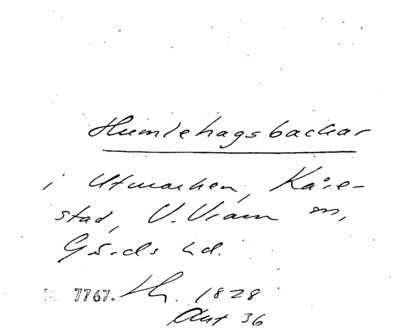 Humlehagsbackar
i Utmarken, Kåre-
stad, V. Vram sn,
Gärds hd.
7767. 1828
Akt 36